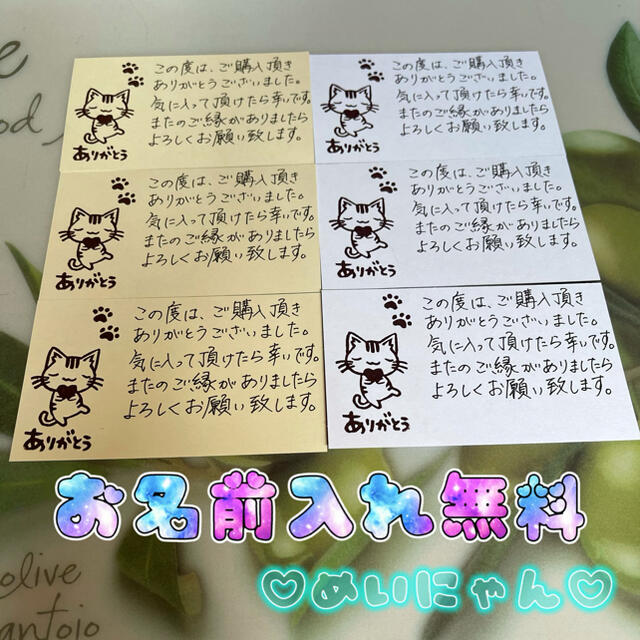 この度は、ご購入頂き
ありがとうございました。
気に入って頂けたら幸いです。
またのご縁がありましたら
よろしくお願い致します。
ありがとう
この度は、ご購入頂き
ありがとうございました。
気に入って頂けたら幸いです。
またのご縁がありましたら
よろしくお願い致します。
ありがとう
この度は、ご購入頂き
ありがとうございました。
気に入って頂けたら幸いです。
またのご縁がありましたら
よろしくお願い致します。
ありがとう
この度は、ご購入頂き
ありがとうございました。
気に入って頂けたら幸いです。
またのご縁がありましたら
よろしくお願い致します。
ありがとう
この度は、ご購入頂き
ありがとうございました。
気に入って頂けたら幸いです。
またのご縁がありましたら
よろしくお願い致します。
ありがとう
この度は、ご購入頂き
ありがとうございました。
気に入って頂けたら幸いです。
またのご縁がありましたら
よろしくお願い致します。
ありがとう
お名前入れ無料
♡めいにゃん♡
olive